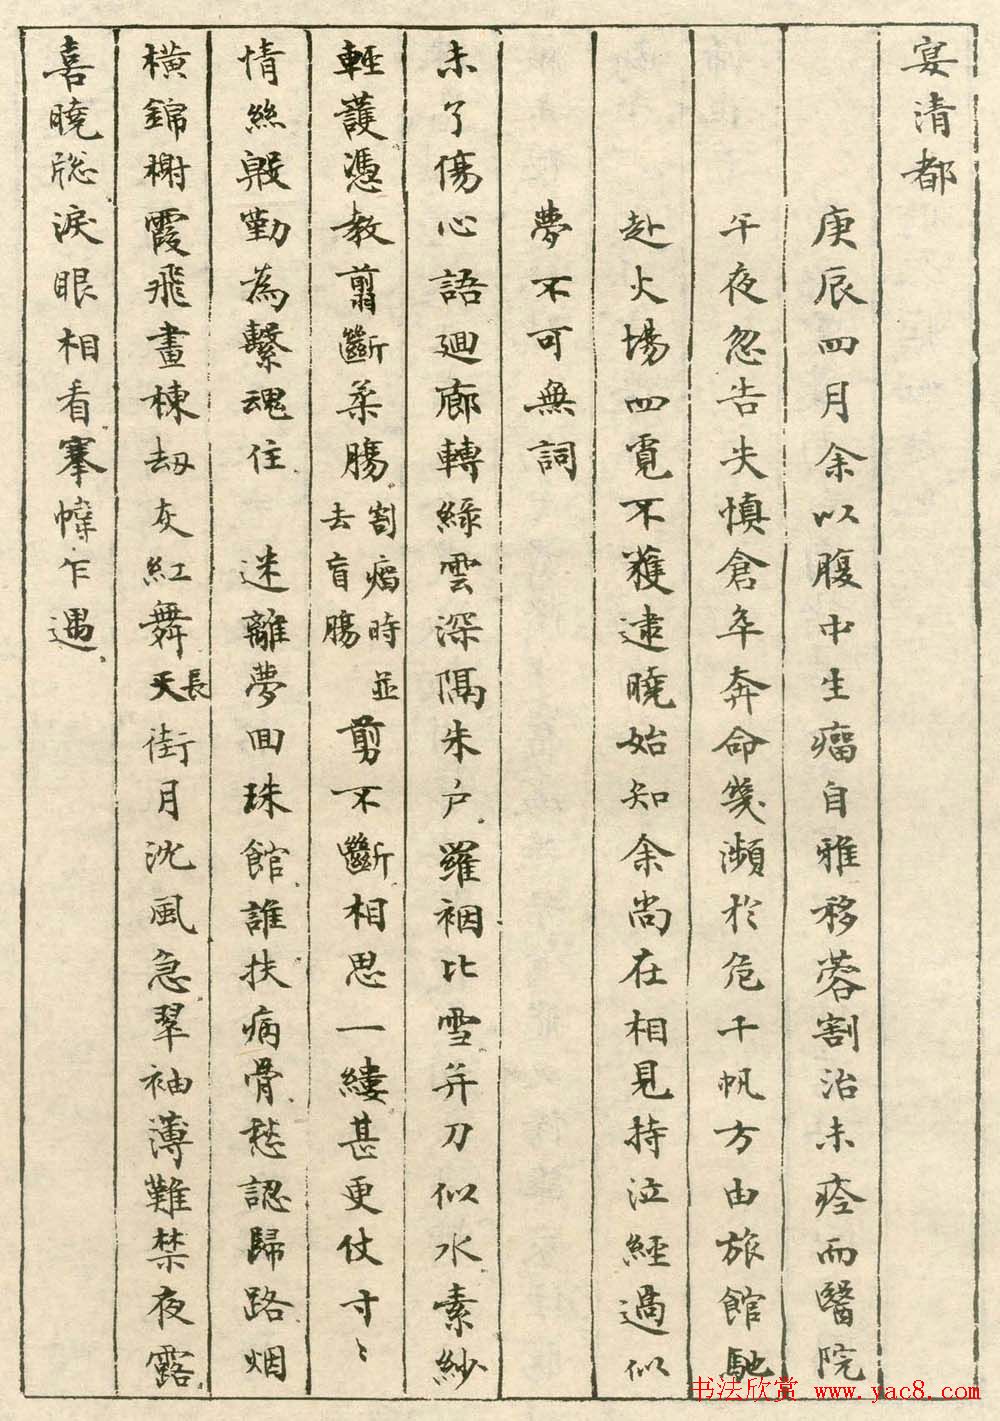 宴清都
庚辰四月余以腹中生瘤自雅移蓉割治未痊而醫院
午夜忽告失慎倉卒奔命幾瀕於危千帆方由旅館馳
赴火場四覓不獲逮曉始知余尚在相見持泣經過似
夢不可無詞
未了傷心語廻廊轉綠雲深隔朱户羅裀比雪并刀似水素紗
輕護憑教翦斷柔腸割瘤時並去盲腸剪不斷相思一縷甚更仗寸〻
情絲殷勤為繫魂住 迷離夢回珠館誰扶病骨愁認歸路烟
橫錦榭霞飛畫棟劫灰紅舞長天街月沈風急翠袖薄難禁夜露
喜曉窗淚眼相看搴幃乍遇
书法欣赏 www.yac8.com